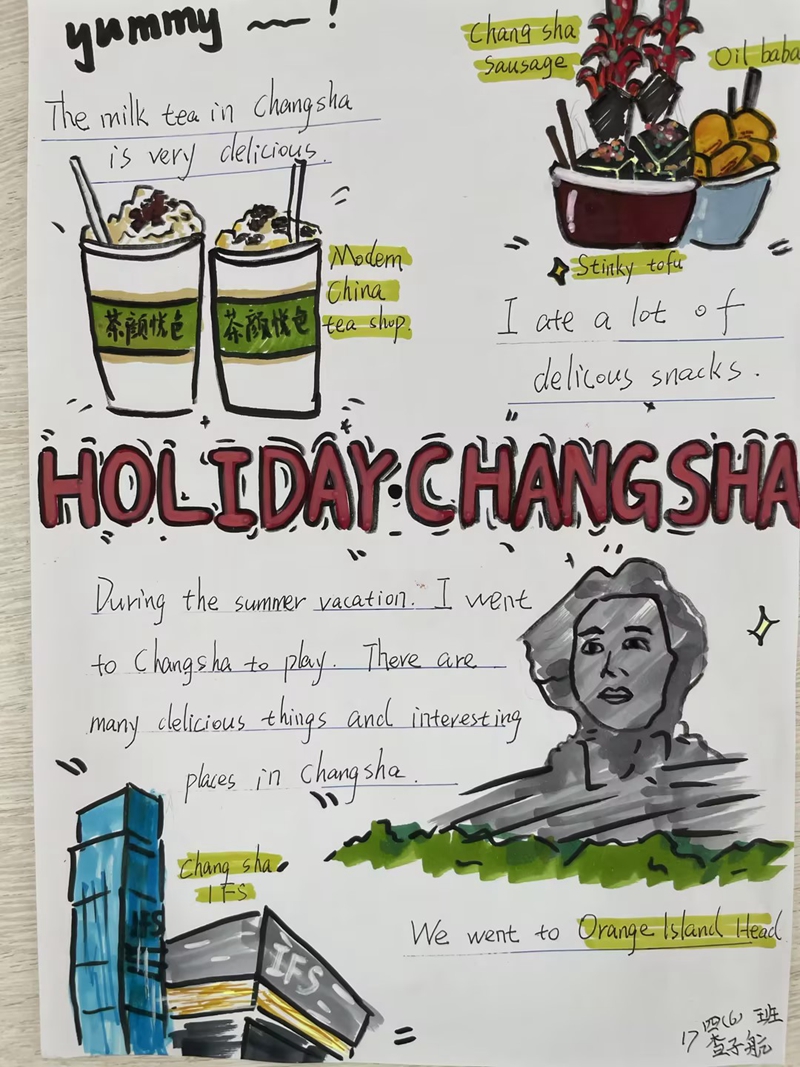 yummy ~ !
The milk tea in Changsha
is very delicious.
茶颜悦色
茶颜悦色
Modern
China
tea shop.
Chang sha
Sausage
Oil baba
Stinky tofu
I ate a lot of
delicous snacks.
HOLIDAY·CHANGSHA
During the summer vacation. I went
to Changsha to play. There are
many delicious things and interesting
places in Changsha.
Chang sha
IFS
IFS
IFS
We went to Orange Island Head
四(6)班
17 查子航